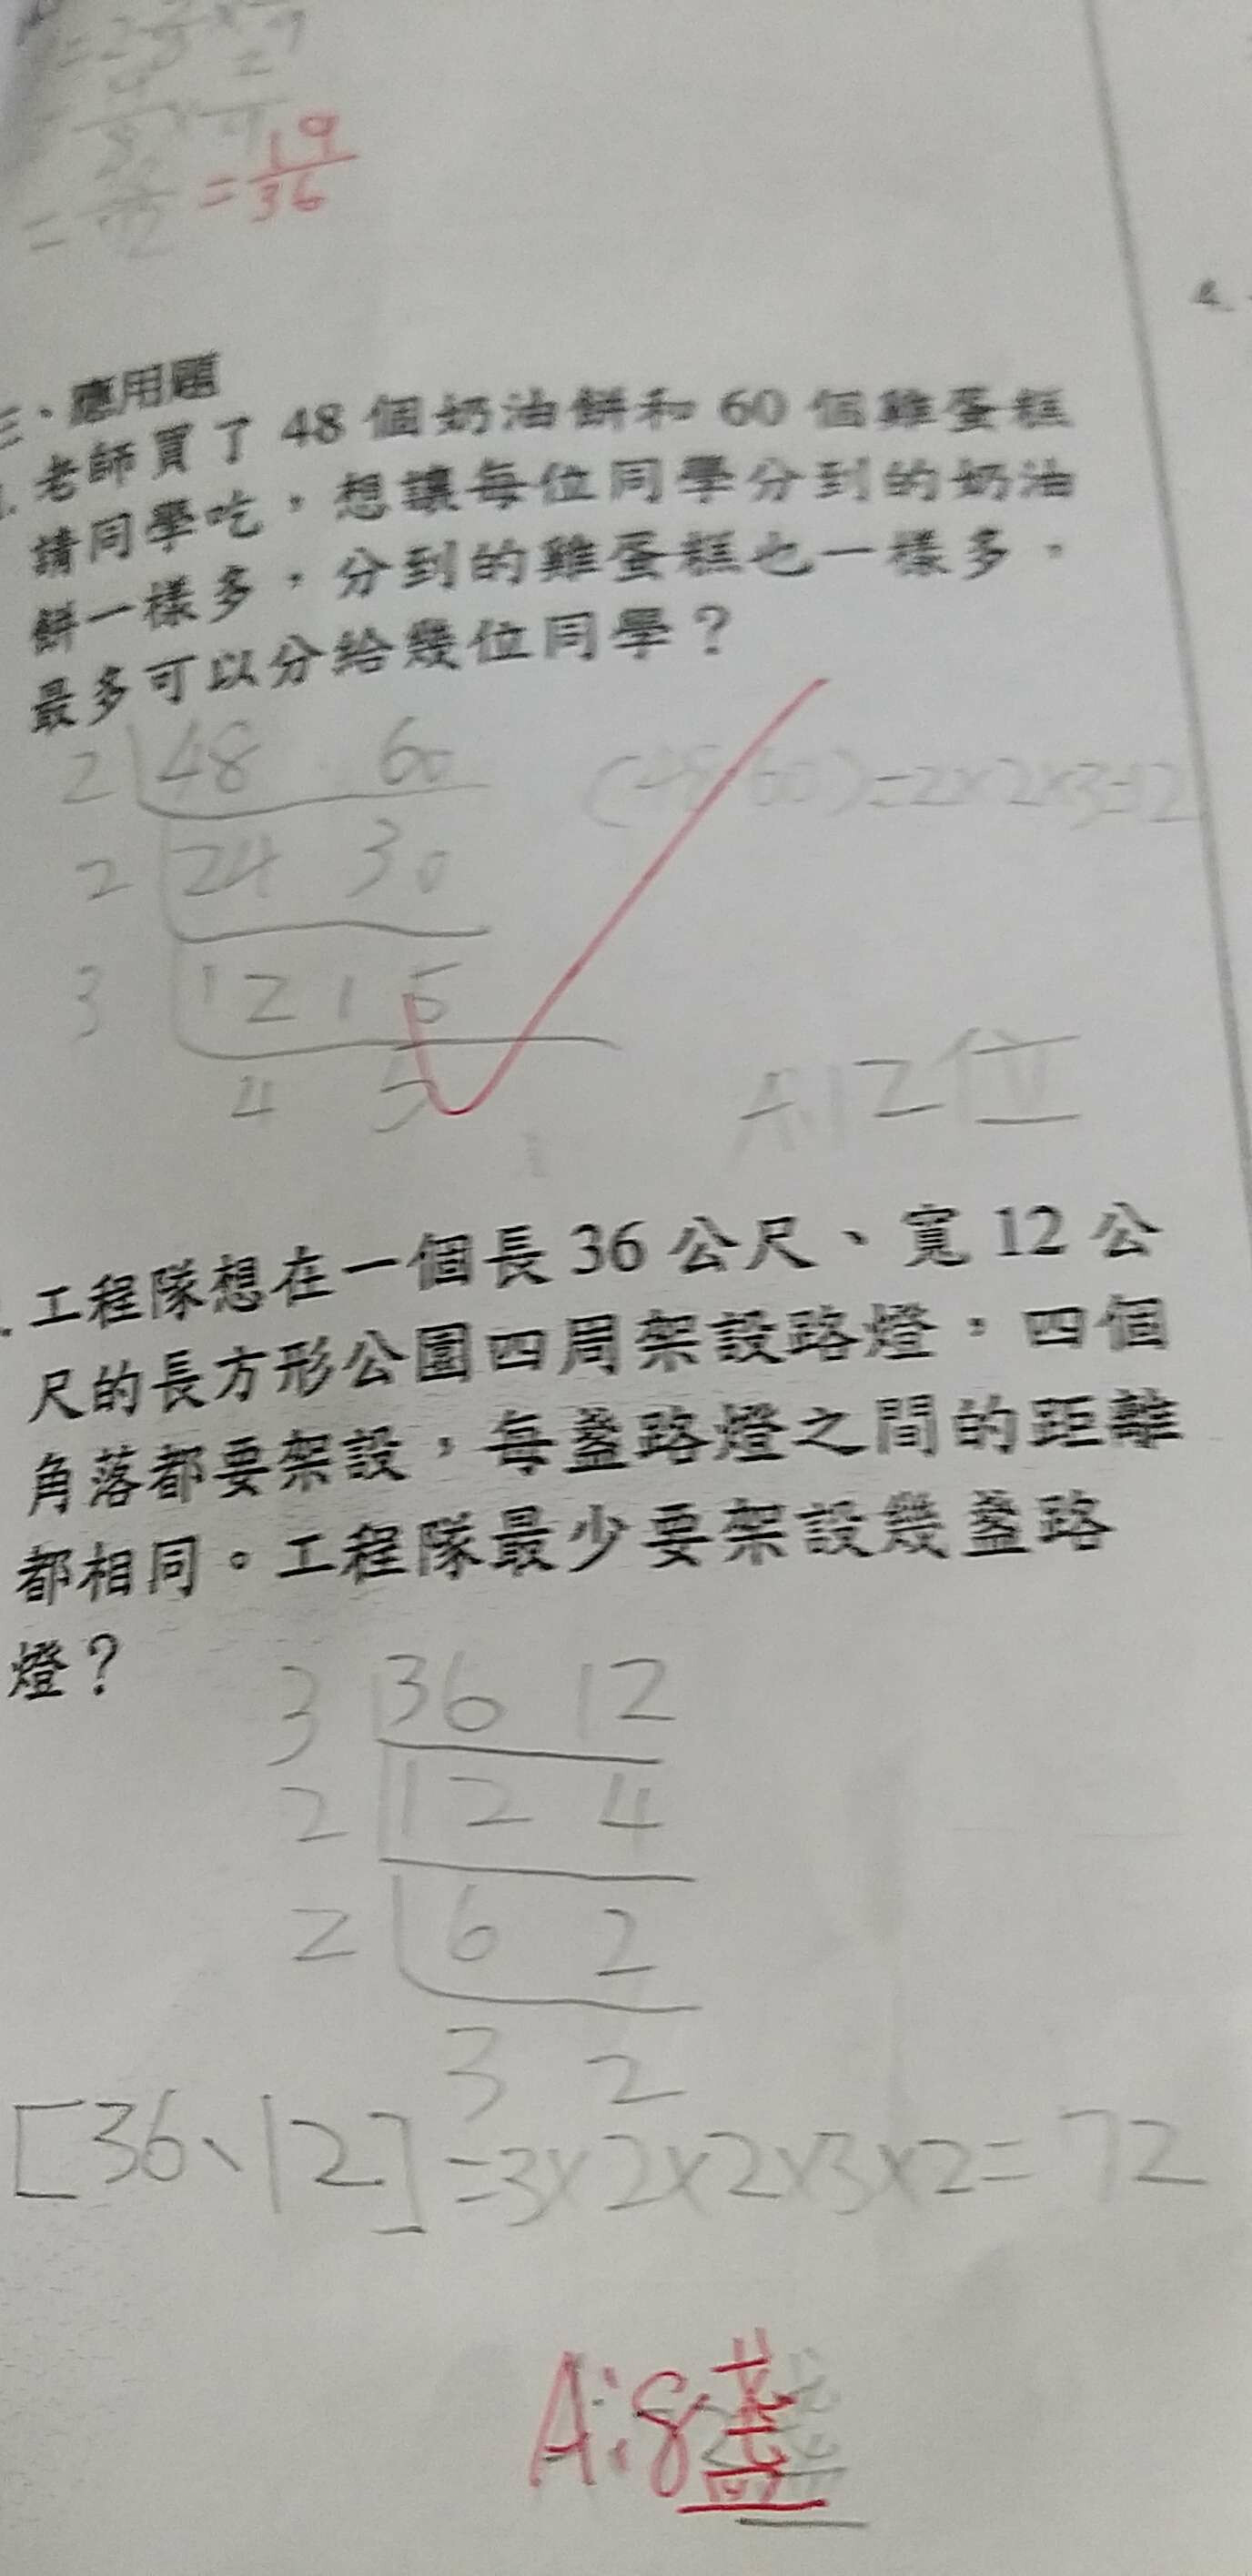 = 19/36
三、應用題
1. 老師買了 48 個奶油餅和 60 個雞蛋糕
請同學吃，想讓每位同學分到的奶油
餅一樣多，分到的雞蛋糕也一樣多，
最多可以分給幾位同學？
2 48 60 (48 60)=2×2×3=12
2 24 30
3 12 15
4 5
A:12位
工程隊想在一個長 36 公尺、寬 12 公
尺的長方形公園四周架設路燈，四個
角落都要架設，每盞路燈之間的距離
都相同。工程隊最少要架設幾盞路
燈？
3 36 12
2 12 4
2 6 2
3 2
[36、12]=3×2×2×3×2=72
A:8盞